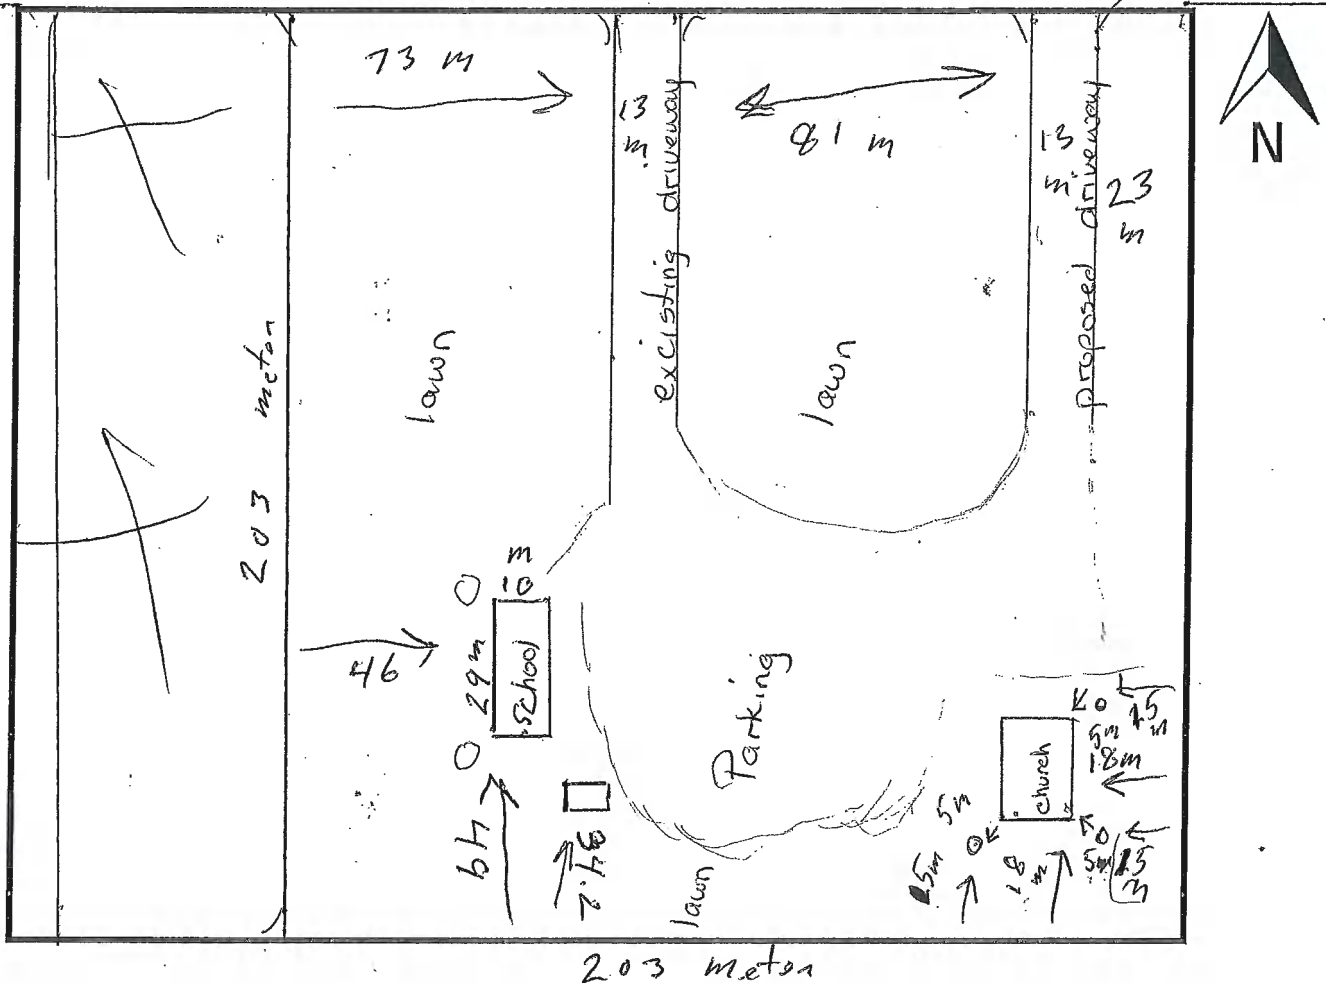 73 m
13
m
existing driveway
81 m
13
m
proposed driveway
23
m
N
203 meter
lawn
lawn
m
10
29 m
School
46
49
34.2
Parking
lawn
church
15
m
5m
18m
5m
15
m
5m
15m
18
m
203 meter